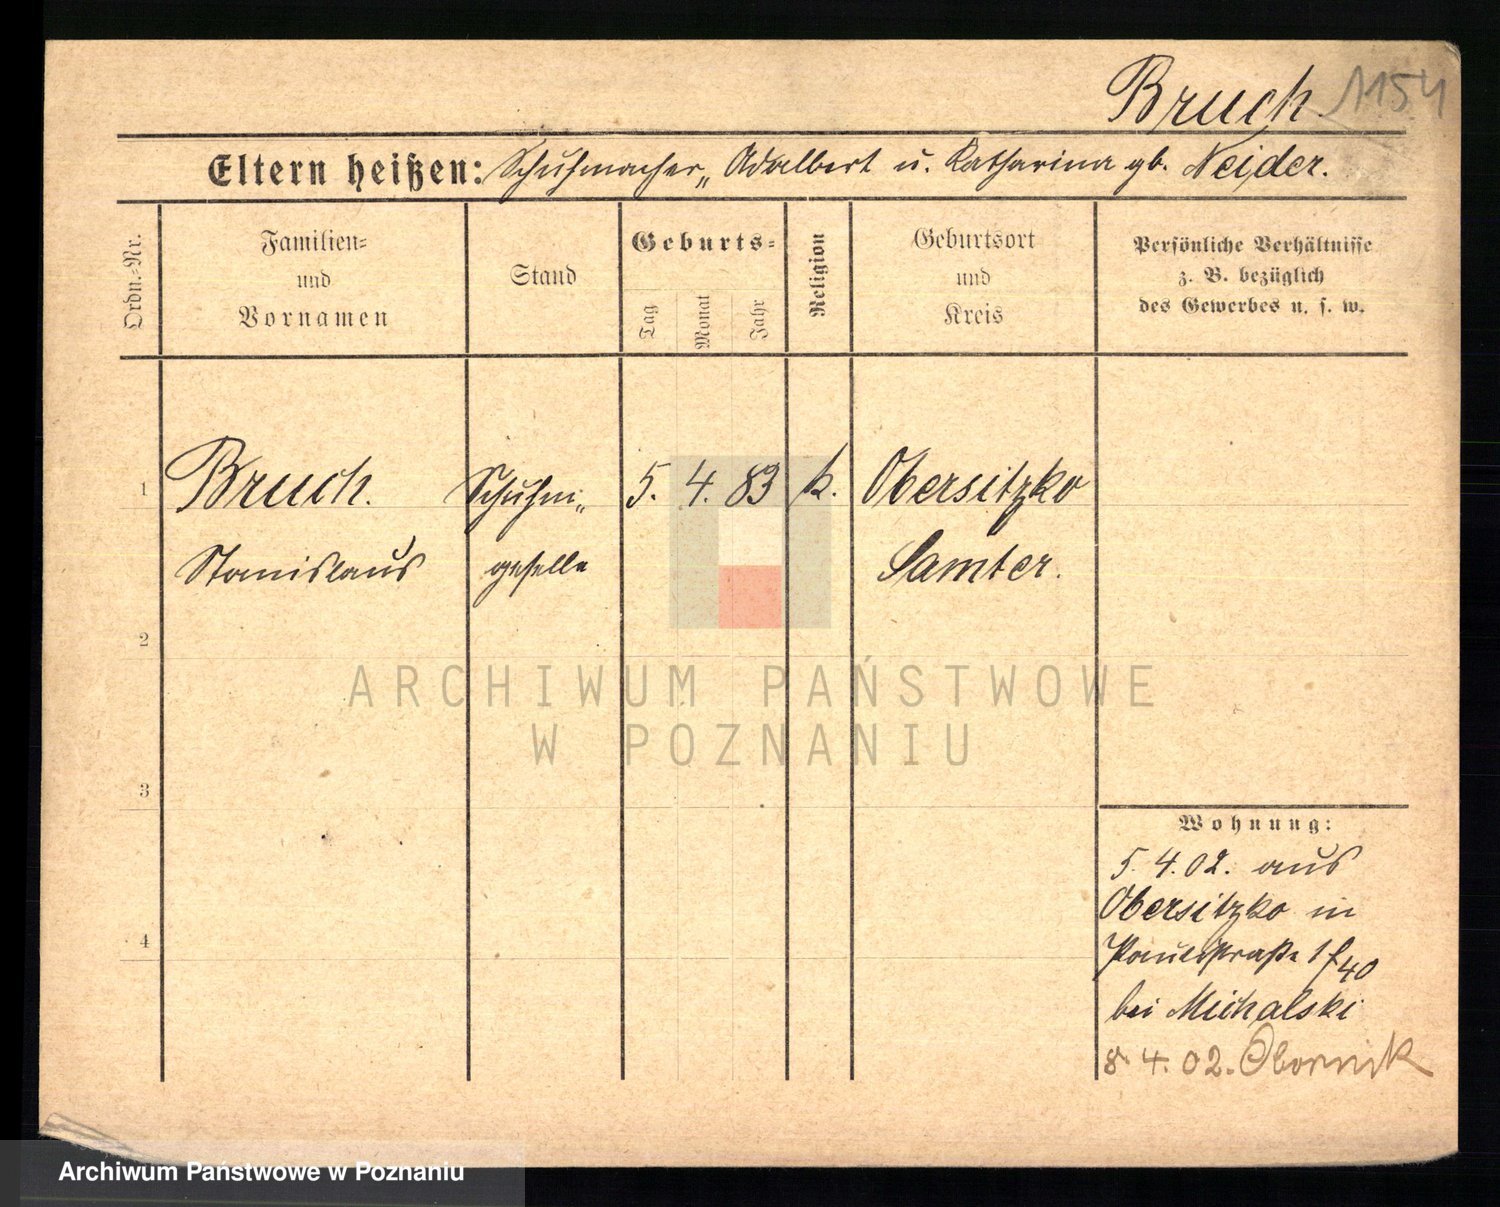 Bruch. 1154
Eltern heißen: Schuhmacher„ Adalbert u. Katharina gb. Neider.
Ordn.=Nr.
Familien=
und
Vornamen
Stand
Geburts=
Tag
Monat
Jahr
Religion
Geburtsort
und
Kreis
Persönliche Verhältnisse
z. B. bezüglich
des Gewerbes u. s. w.
1 Bruch. Schuhm„ 5. 4. 83 k. Obersitzko
Stanislaus geselle Samter.
2
3
4
Wohnung:
5. 4. 02. aus
Obersitzko in
Paulistraße 1 f 40
bei Michalski
8. 4. 02. Obornik
ARCHIWUM PAŃSTWOWE
W POZNANIU
Archiwum Państwowe w Poznaniu